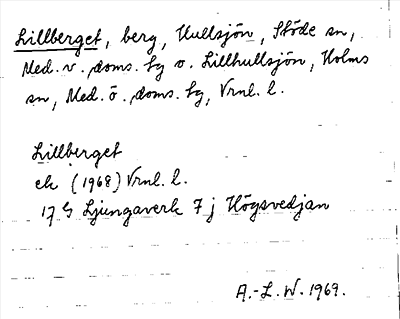 Lillberget, berg, Hullsjön, Stöde sn,
Med. v. doms. hg o. Lillhullsjön, Holms
sn, Med. ö. doms. hg, Vrnl. l.
Lillberget
ek (1968) Vrnl. l.
17 G Ljungaverk 7 j Högsvedjan
A.-L. W. 1969.